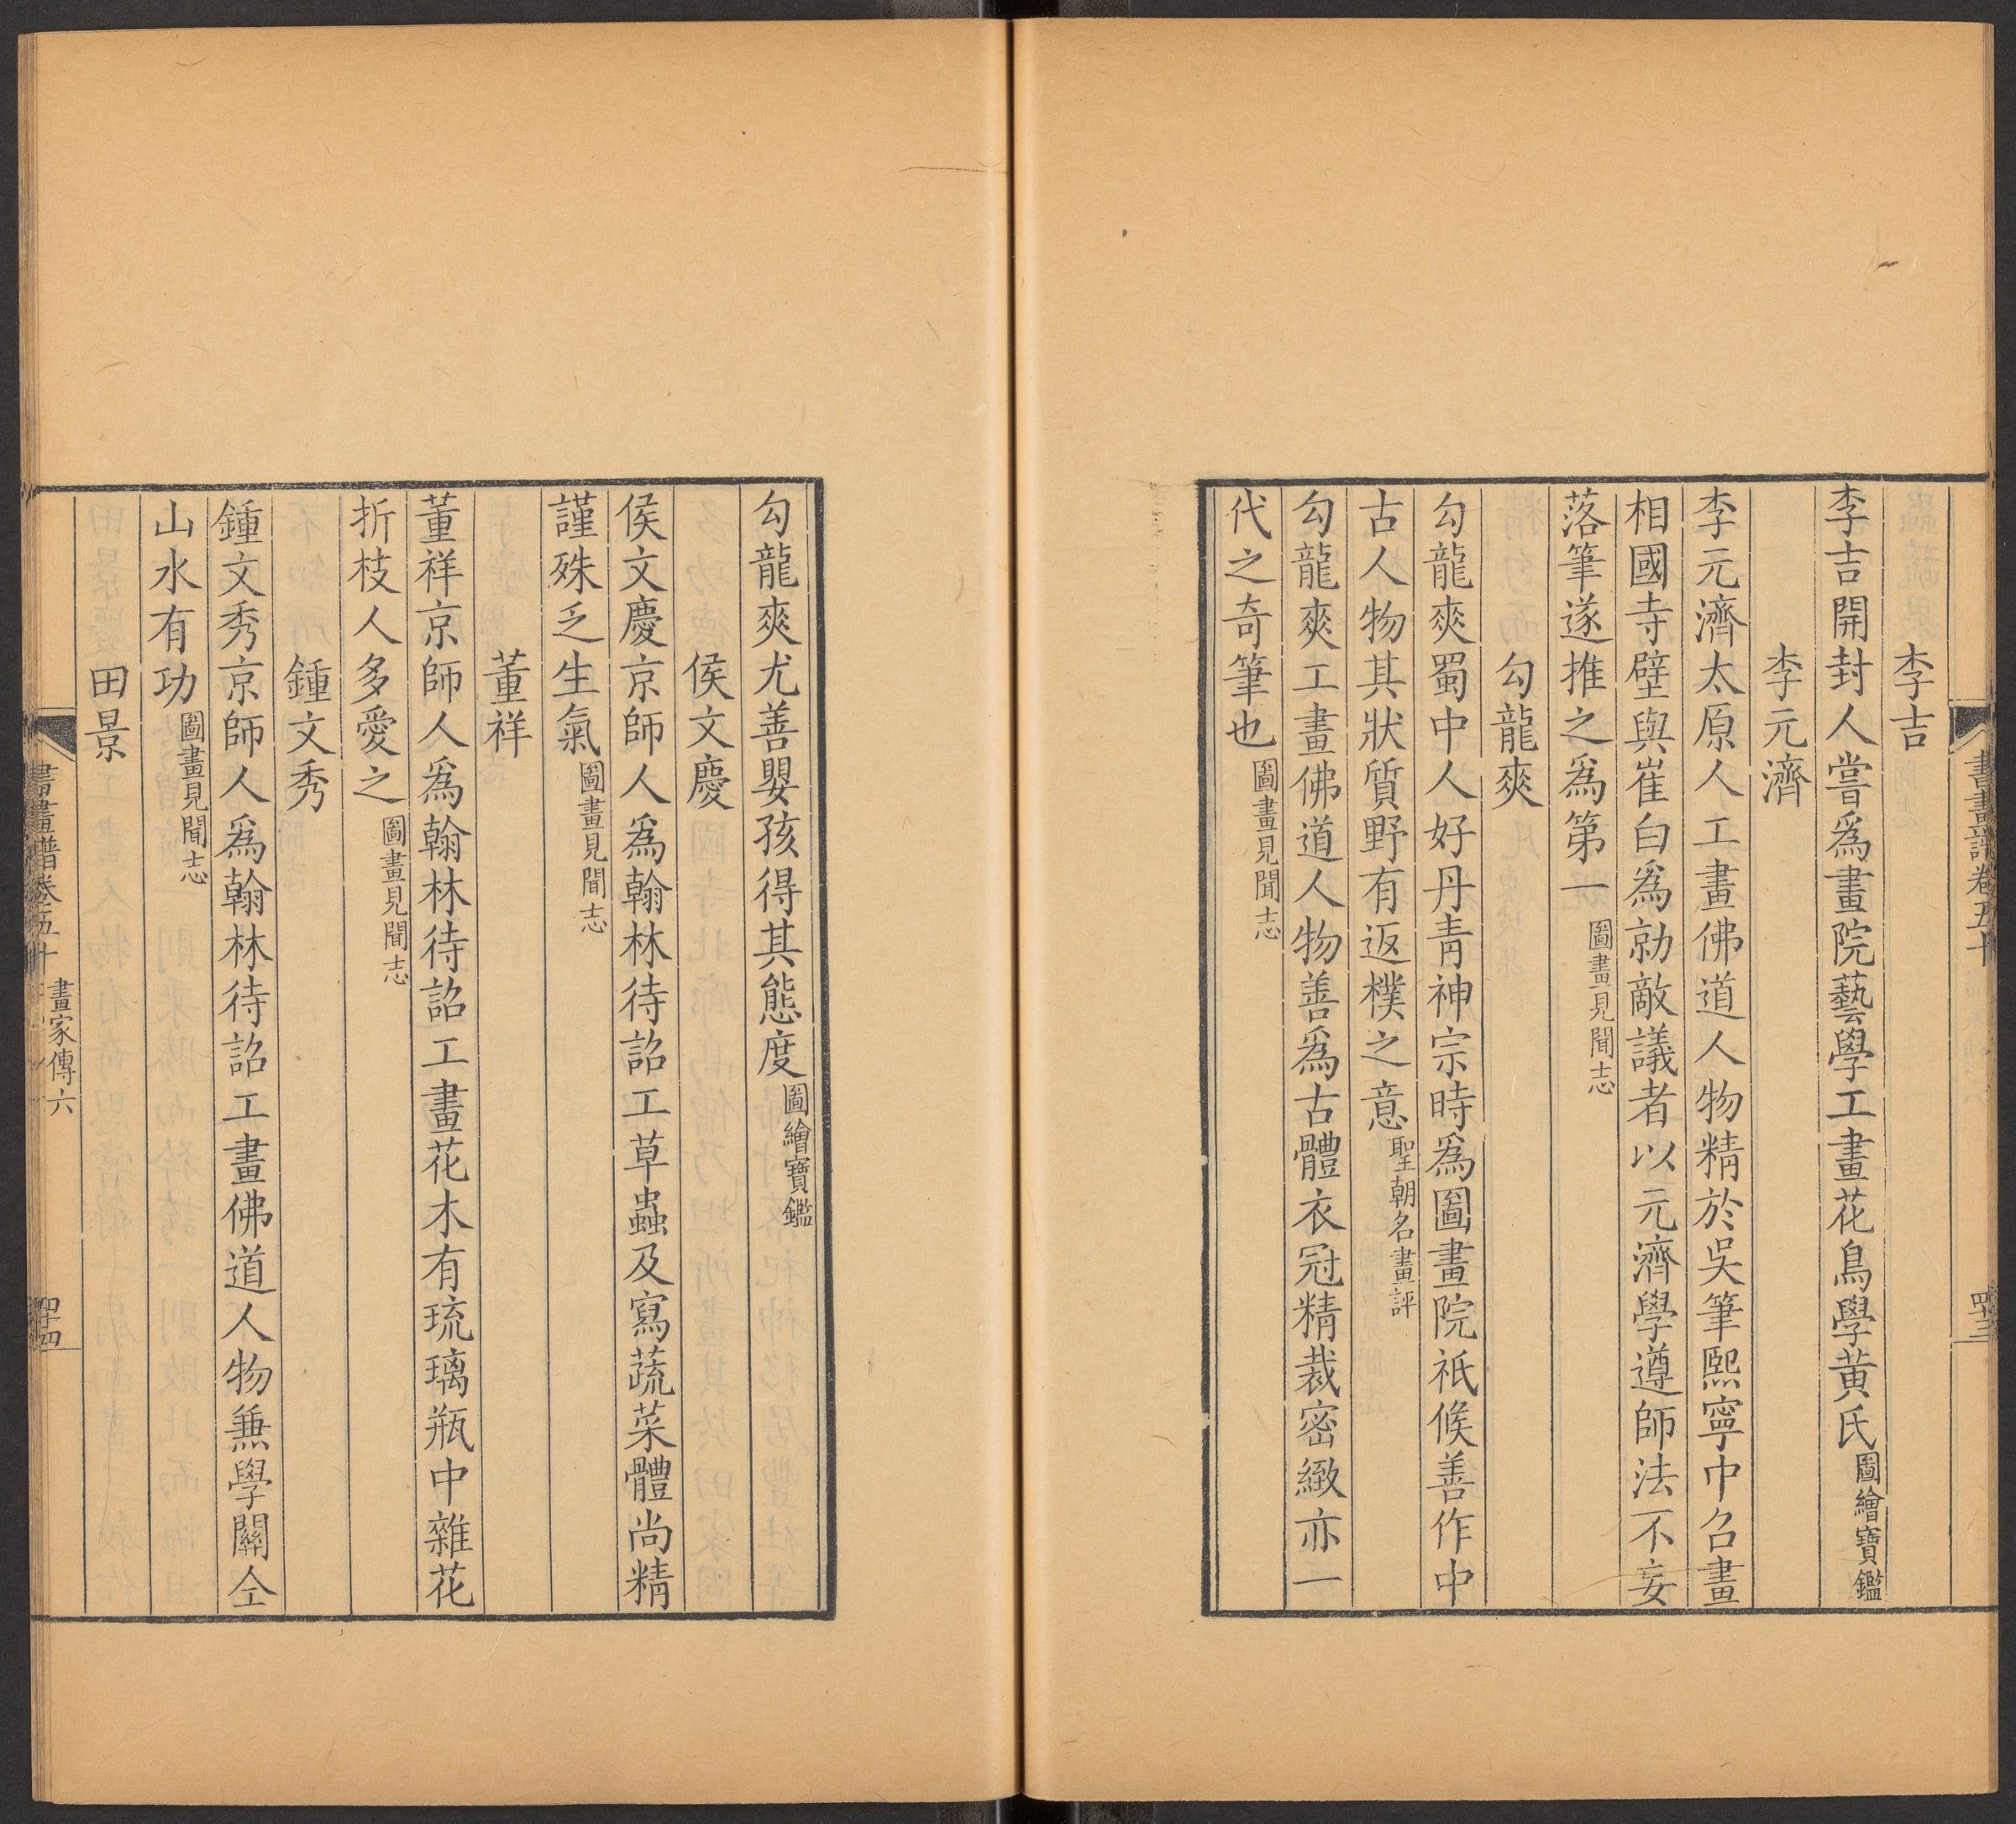 李吉
李吉開封人嘗爲畫院藝學工畫花鳥學黄氏圖繪寶鑑
李元濟
李元濟太原人工畫佛道人物精於吳筆熙寧中召畫
相國寺壁與崔白爲勍敵議者以元濟學遵師法不妄
落筆遂推之爲第一圖畫見聞志
勾龍爽
勾龍爽蜀中人好丹青神宗時爲圖畫院祇候善作中
古人物其狀質野有返樸之意聖朝名畫評
勾龍爽工畫佛道人物善爲古體衣冠精裁密緻亦一
代之奇筆也圖畫見聞志
勾龍爽尤善嬰孩得其態度圖繪寶鑑
侯文慶
侯文慶京師人爲翰林待詔工草蟲及寫蔬菜體尚精
謹殊乏生氣圖畫見聞志
董祥
董祥京師人爲翰林待詔工畫花木有琉璃瓶中雜花
折枝人多愛之圖畫見聞志
鍾文秀
鍾文秀京師人爲翰林待詔工畫佛道人物兼學關仝
山水有功圖畫見聞志
田景
書畫譜卷五十 畫家傳六
四十四